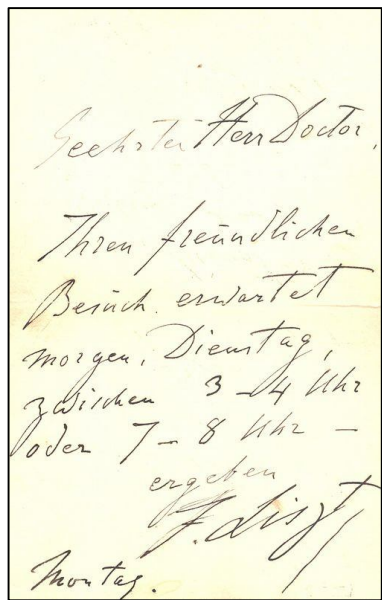 Geehrter Herr Doctor,
Ihren freundlichen
Besuch erwartet
morgen, Dienstag,
zwischen 3-4 Uhr
oder 7-8 Uhr -
ergeben
F. Liszt
Montag.